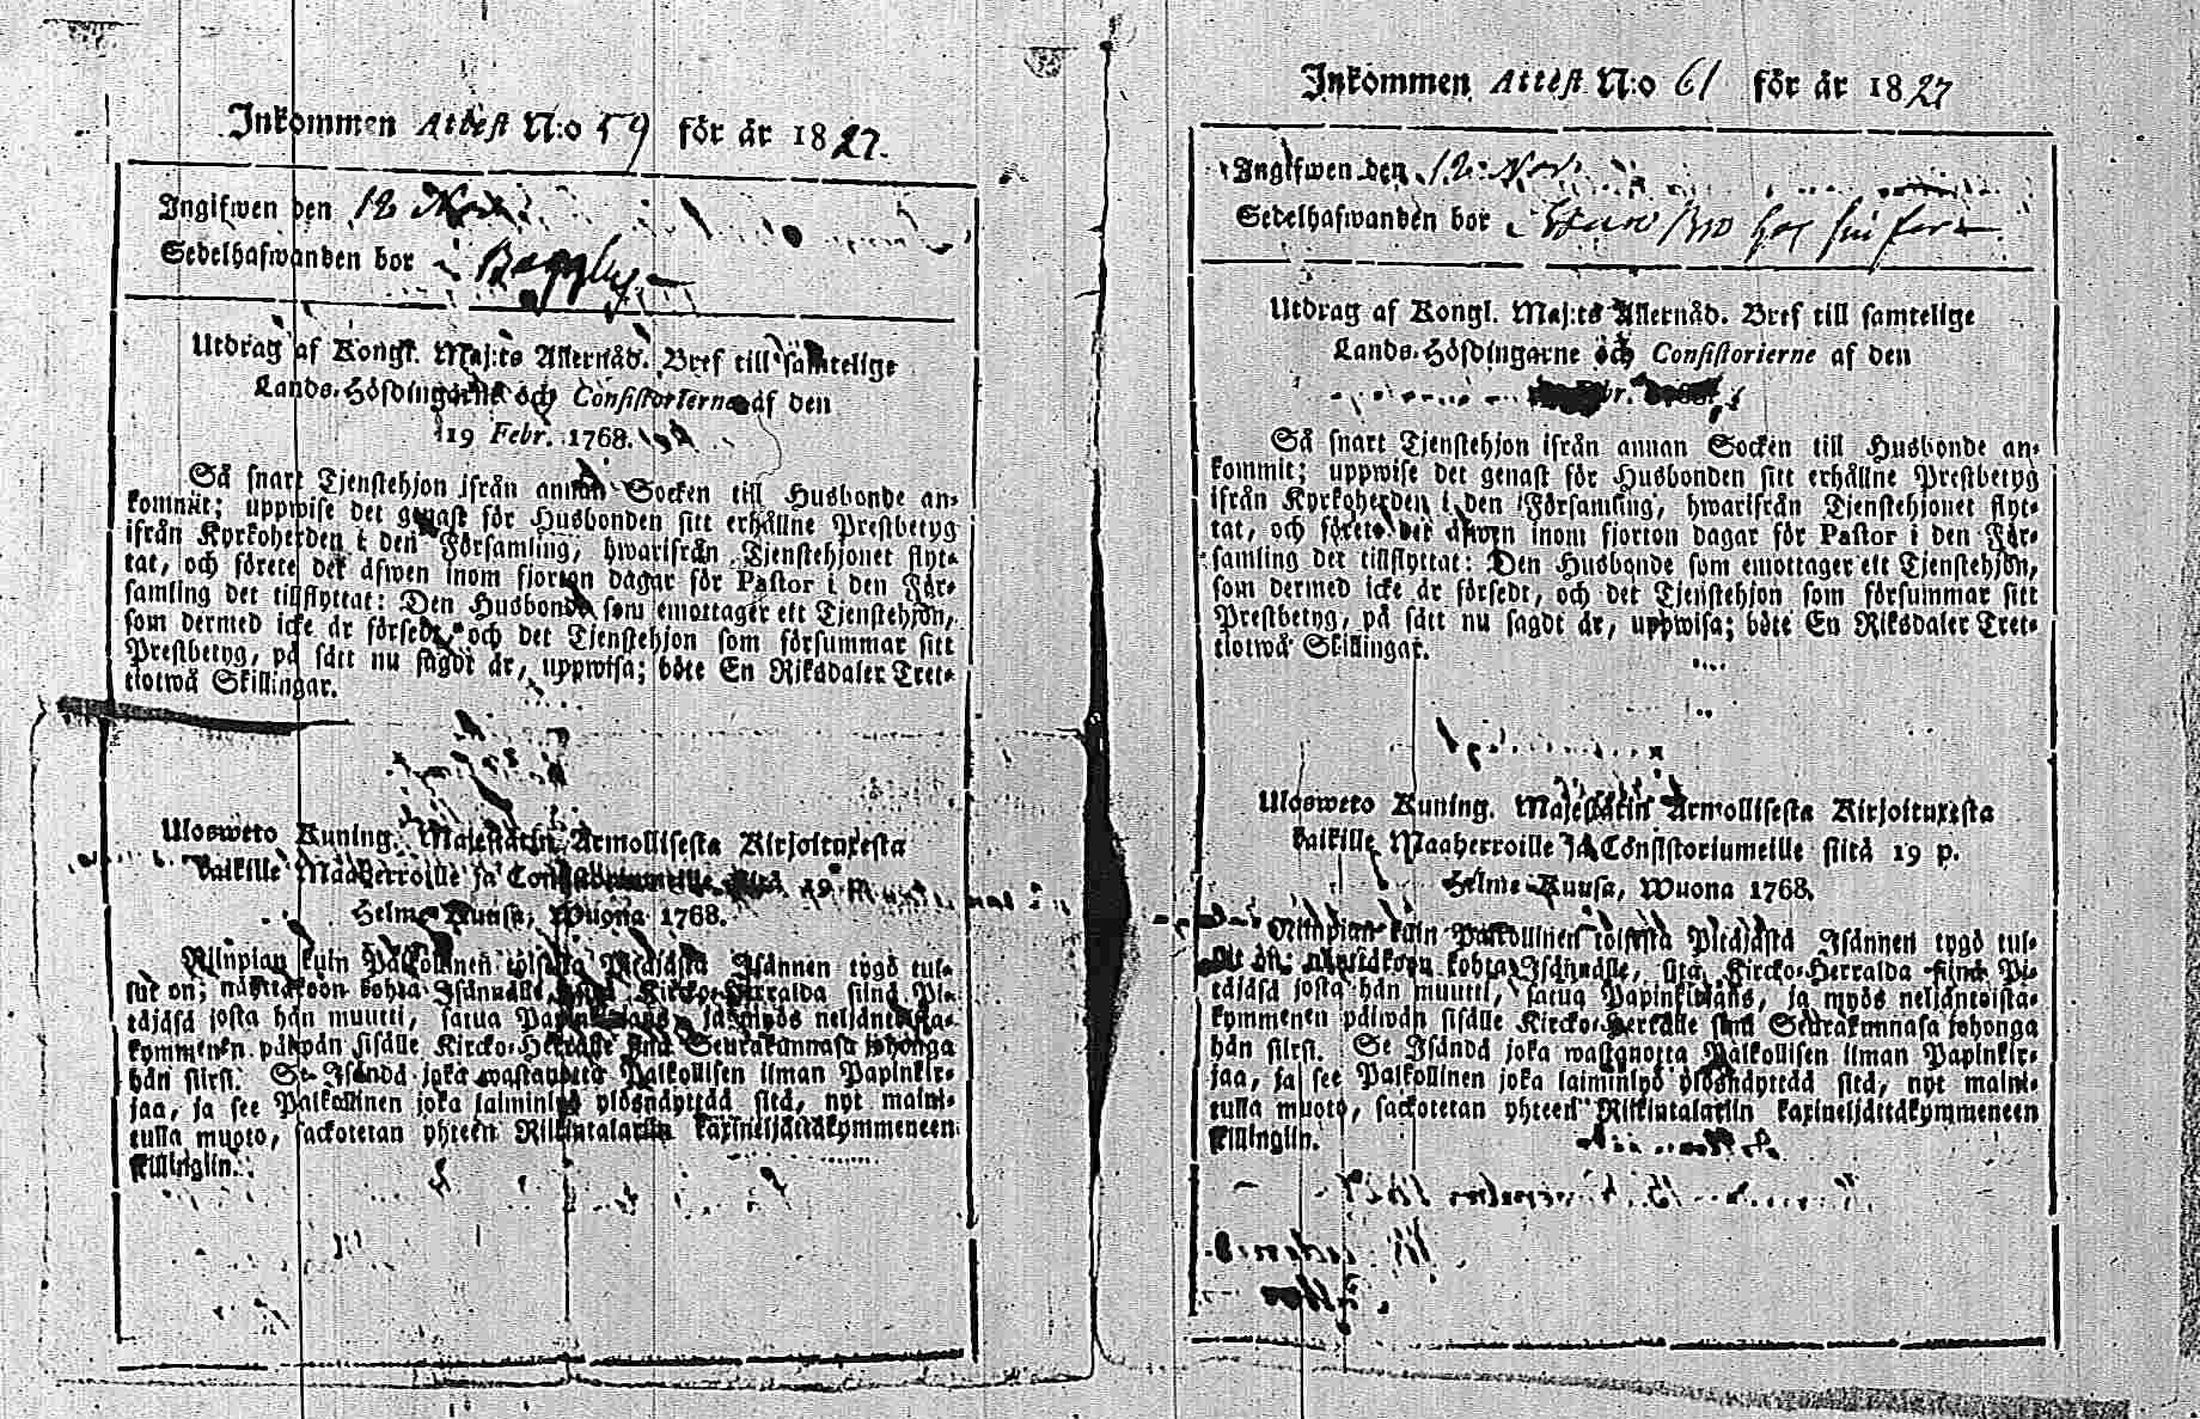 Inkommen Attest N:o 59 för år 1827.
Ingifwen den 12 Nov.
Sedelhafwanden bor Baggby
Utdrag af Kongl. Maj:ts Allernåd. Bref till samtelige
Lands-Höfdingarne och Consistorierne af den
19 Febr. 1768.
Så snart Tjenstehjon ifrån annan Socken till Husbonde an-
kommit; uppwise det genast för Husbonden sitt erhållne Prestbetyg
ifrån Kyrkoherden i den Församling, hwarifrån Tjenstehjonet flyt-
tat, och förete det äfwen inom fjorton dagar för Pastor i den För-
samling det tillflyttat: Den Husbonde som emottager ett Tjenstehjon,
som dermed icke är försedt, och det Tjenstehjon som försummar sitt
Prestbetyg, på sätt nu sagdt är, uppwisa; böte En Riksdaler Tret-
tiotwå Skillingar.
Ulosweto Kuning. Majestätin Armollisesta Kirjoituxesta
kaikille Maaherroille ja Consistoriumeille siitä 19 p.
Helme Kuusa, Wuona 1768.
Niinpian kuin Palkollinen toisesta Pitäjästä Isännen tygö tul-
lut on; näyttäköön kohta Isännälle, siitä Kircko-Herralda siinä Pi-
täjäsä josta hän muutti, saatua Papinkirjans, ja myös neljäntoista-
kymmenen päiwän sisälle Kircko-Herralle siinä Seurakunnasa johonga
hän siirsi. Se Isändä joka wastanotta Palkollisen ilman Papinkir-
jaa, ja see Palkollinen joka laiminlyö ylösnäyttää sitä, nyt maini-
tulla muoto, sackotetan yhteen Riikintalariin kaxineljättäkymmeneen
killingiin.
Inkommen Attest N:o 61 för år 1827
Ingifwen den 12 Nov.
Sedelhafwanden bor Bro hos sin
Utdrag af Kongl. Maj:ts Allernåd. Bref till samtelige
Lands-Höfdingarne och Consistorierne af den
Så snart Tjenstehjon ifrån annan Socken till Husbonde an-
kommit; uppwise det genast för Husbonden sitt erhållne Prestbetyg
ifrån Kyrkoherden i den Församling, hwarifrån Tjenstehjonet flyt-
tat, och förete det äfwen inom fjorton dagar för Pastor i den För-
samling det tillflyttat: Den Husbonde som emottager ett Tjenstehjon,
som dermed icke är försedt, och det Tjenstehjon som försummar sitt
Prestbetyg, på sätt nu sagdt är, uppwisa; böte En Riksdaler Tret-
tiotwå Skillingar.
Ulosweto Kuning. Majestätin Armollisesta Kirjoituxesta
kaikille Maaherroille ja Consistoriumeille siitä 19 p.
Helme Kuusa, Wuona 1768.
Niinpian kuin Palkollinen toisesta Pitäjästä Isännen tygö tul-
lut on; näyttäköön kohta Isännälle, siitä Kircko-Herralda siinä Pi-
täjäsä josta hän muutti, saatua Papinkirjans, ja myös neljäntoista-
kymmenen päiwän sisälle Kircko-Herralle siinä Seurakunnasa johonga
hän siirsi. Se Isändä joka wastanotta Palkollisen ilman Papinkir-
jaa, ja see Palkollinen joka laiminlyö ylösnäyttää sitä, nyt maini-
tulla muoto, sackotetan yhteen Riikintalariin kaxineljättäkymmeneen
killingiin.